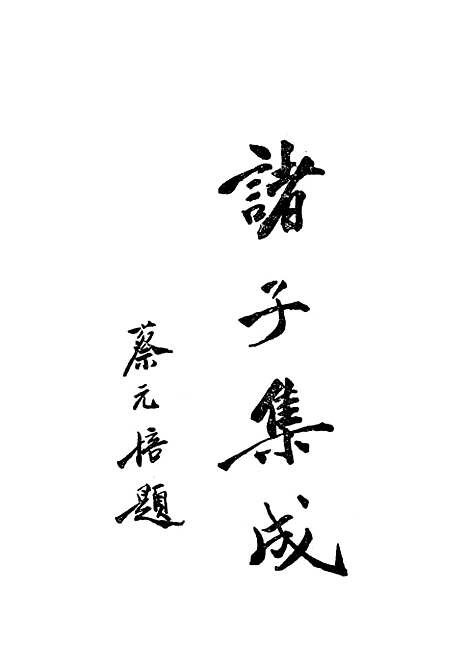 諸子集成
蔡元培題